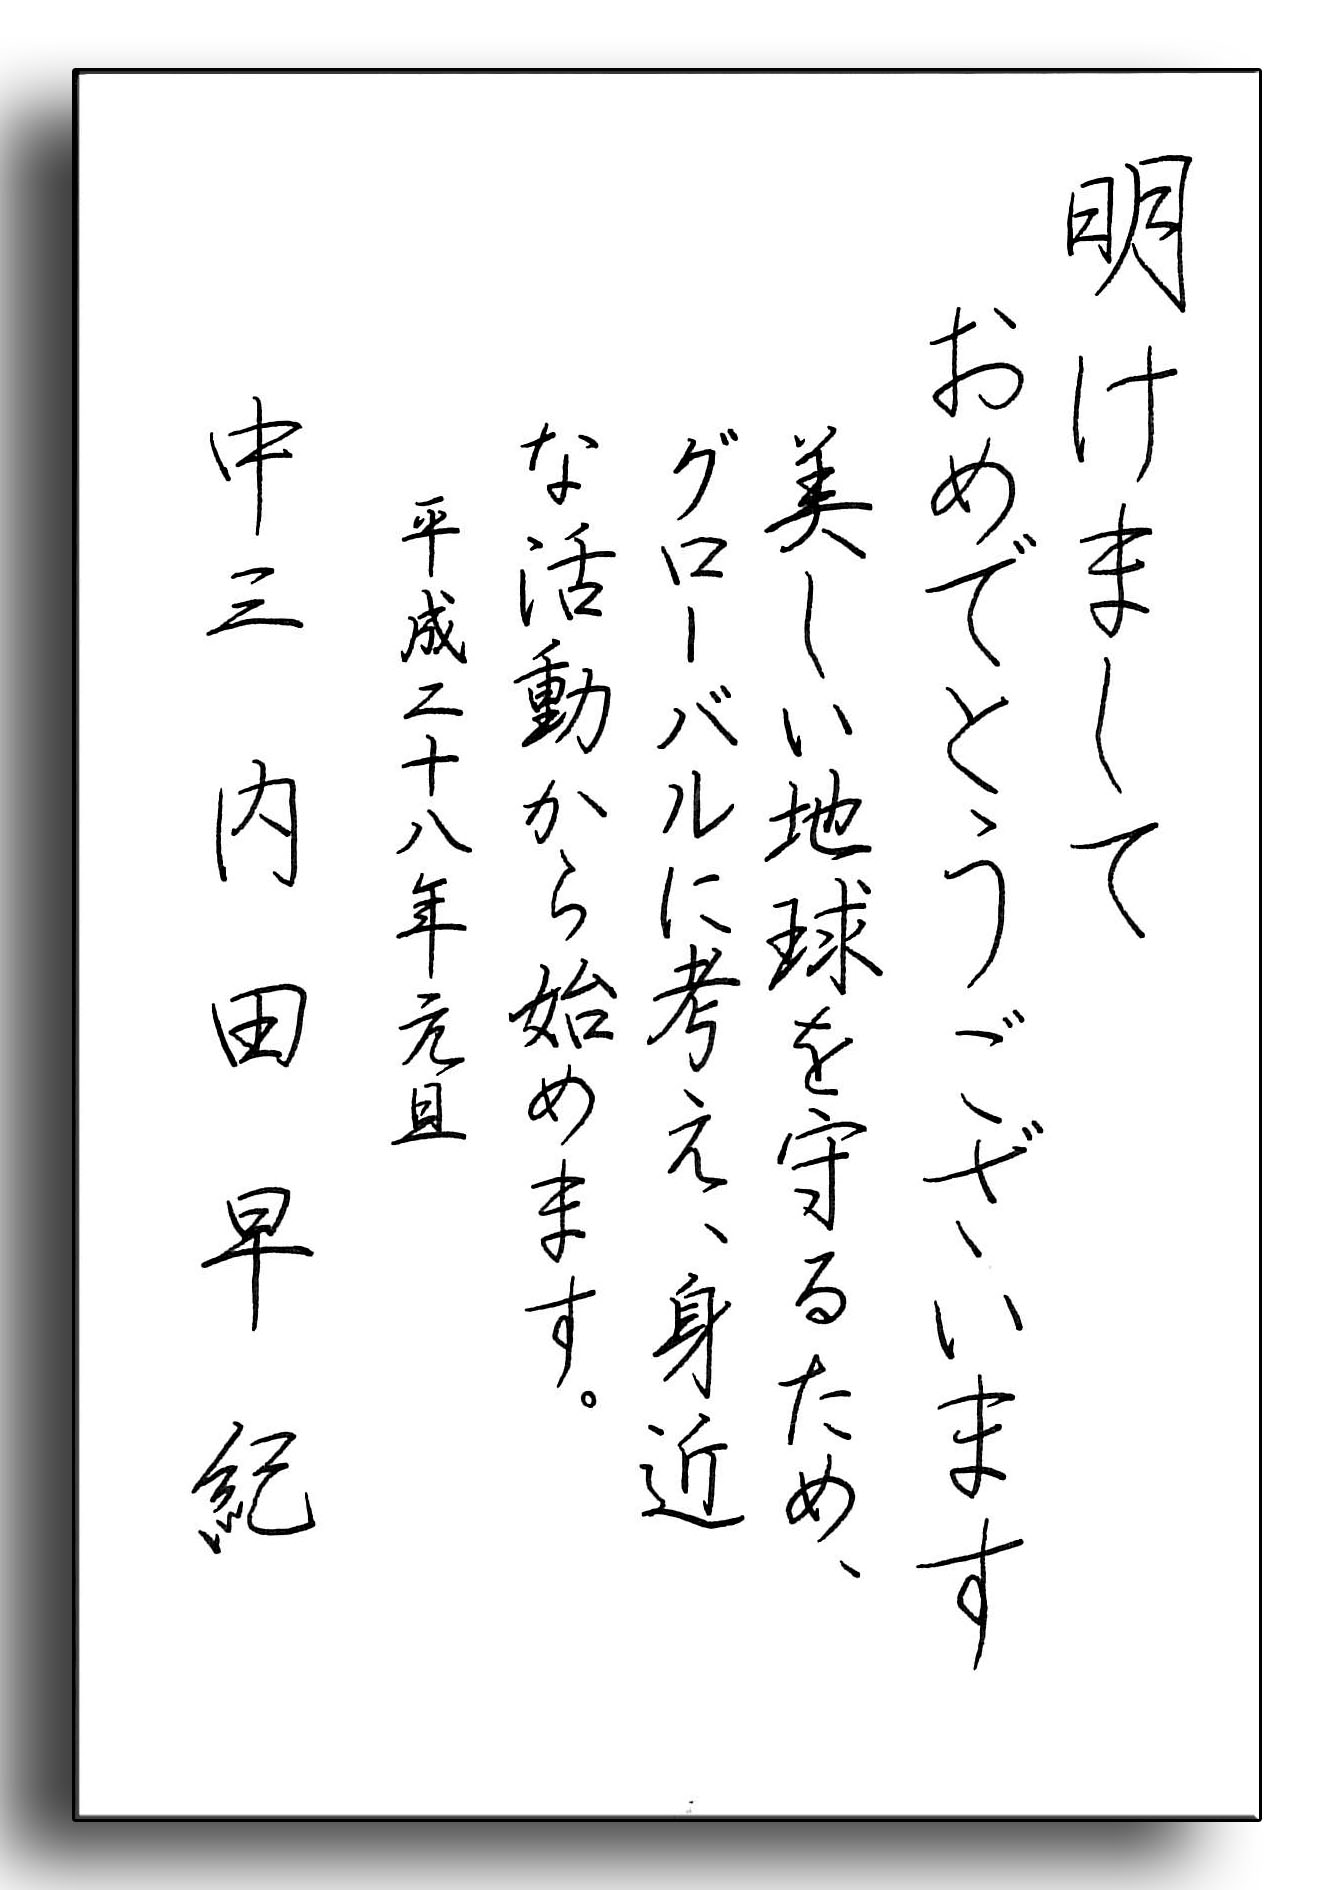 明けまして
おめでとうございます
美しい地球を守るため、
グローバルに考え、身近
な活動から始めます。
平成二十八年元旦
中三 内田早紀